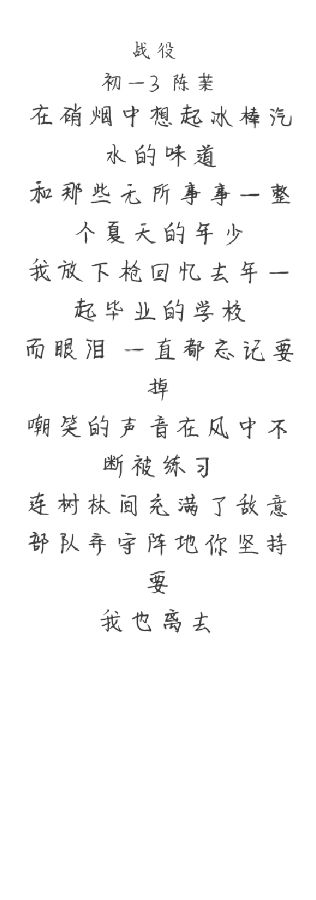 战役
初一3 陈茉
在硝烟中想起冰棒汽
水的味道
和那些无所事事一整
个夏天的年少
我放下枪回忆去年一
起毕业的学校
而眼泪 一直都忘记要
掉
嘲笑的声音在风中不
断被练习
连树林间充满了敌意
部队弃守阵地你坚持
要
我也离去